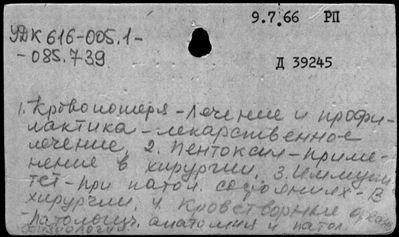 9.7.66 РП
УДК 616-005.1-
-085.739
Д 39245
1. Кровопотеря - лечение и профи-
лактика - лекарственное
лечение, 2. Пентоксил - приме-
нение в хирургии, 3. Иммуни-
тет - при патол. состояниях - в
хирургии, 4. Кроветворные органы
- патологич. анатомия и патол.
физиология